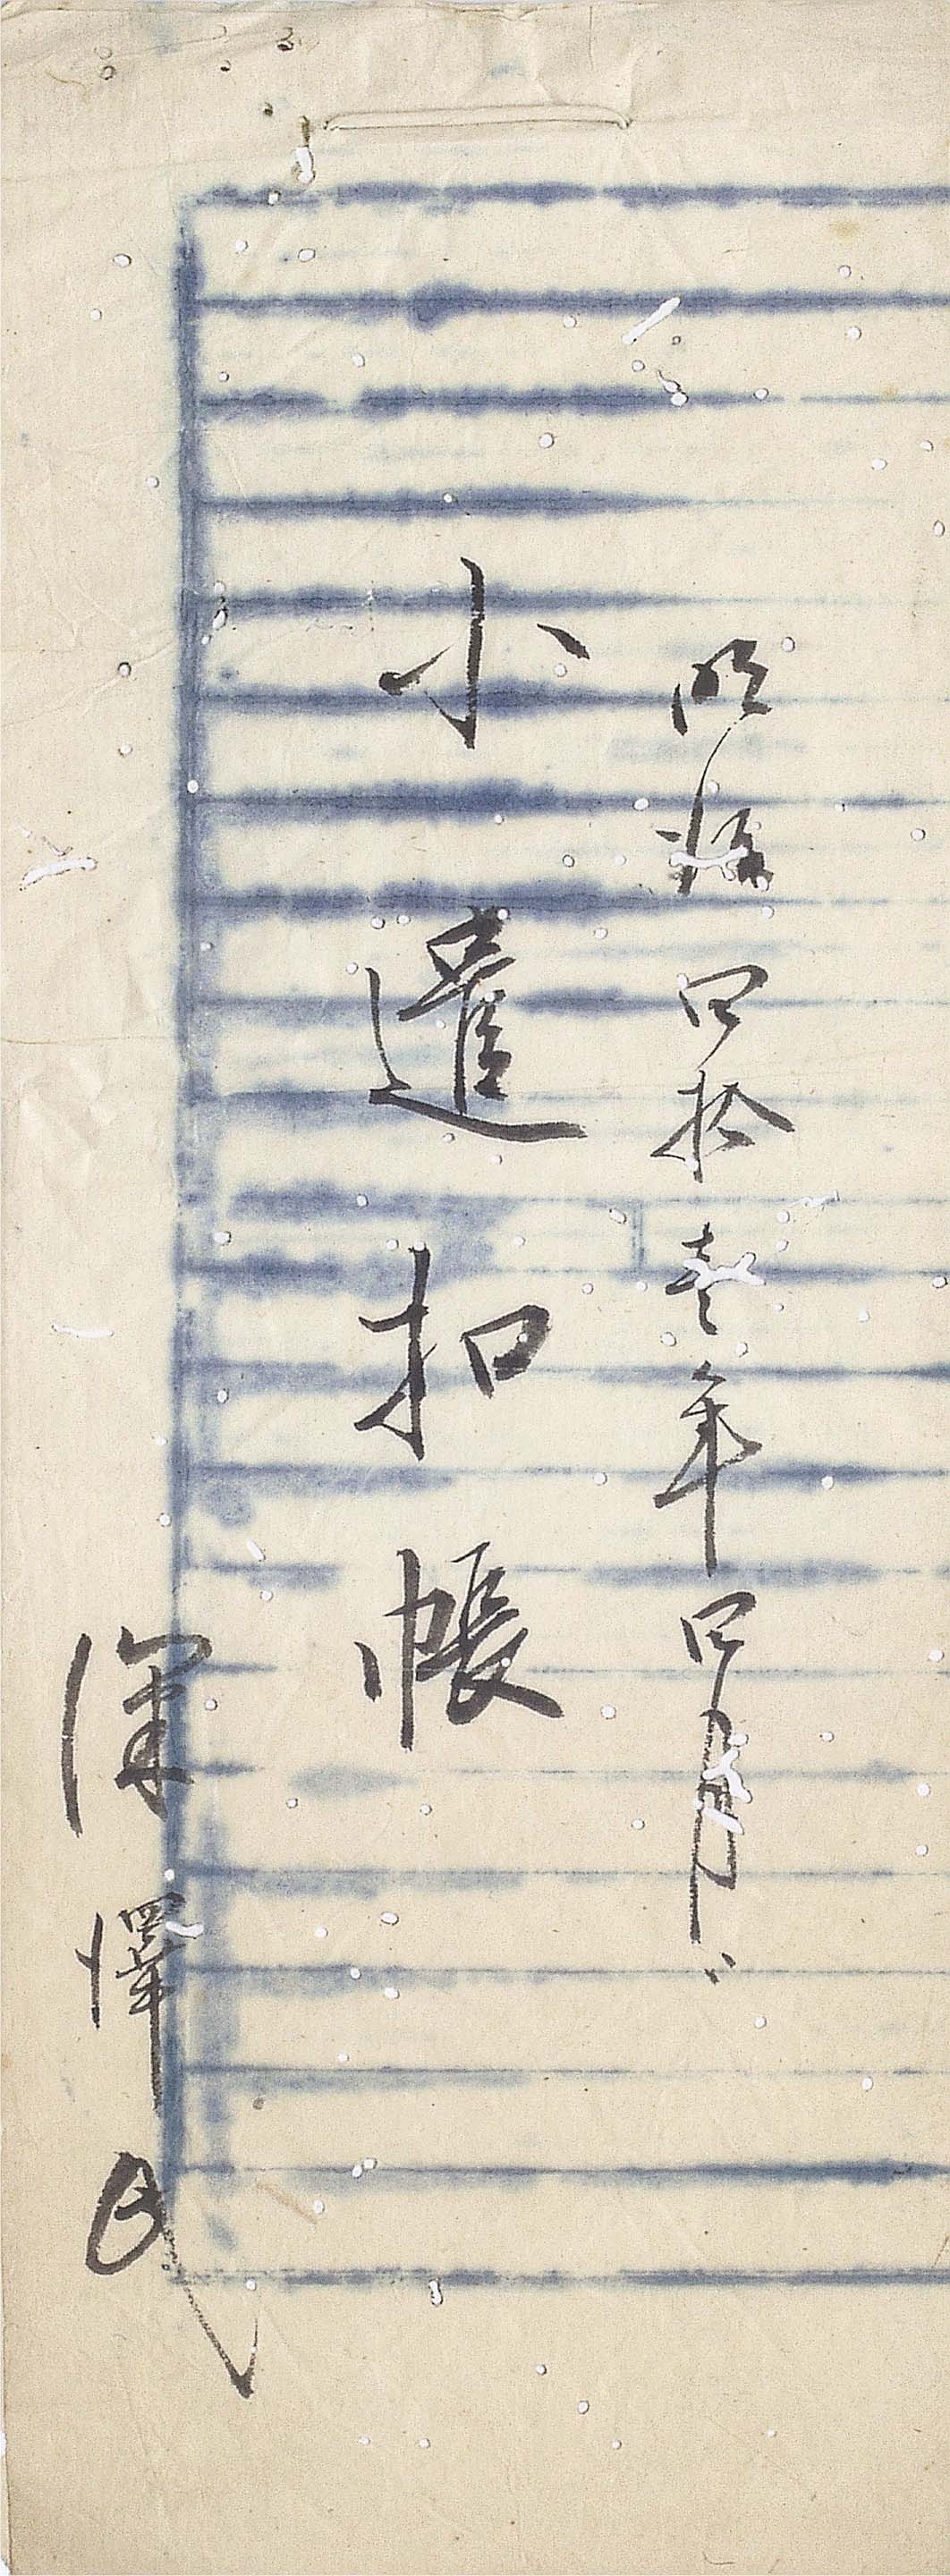 明治四拾壱年四月
小遣扣帳
深澤氏